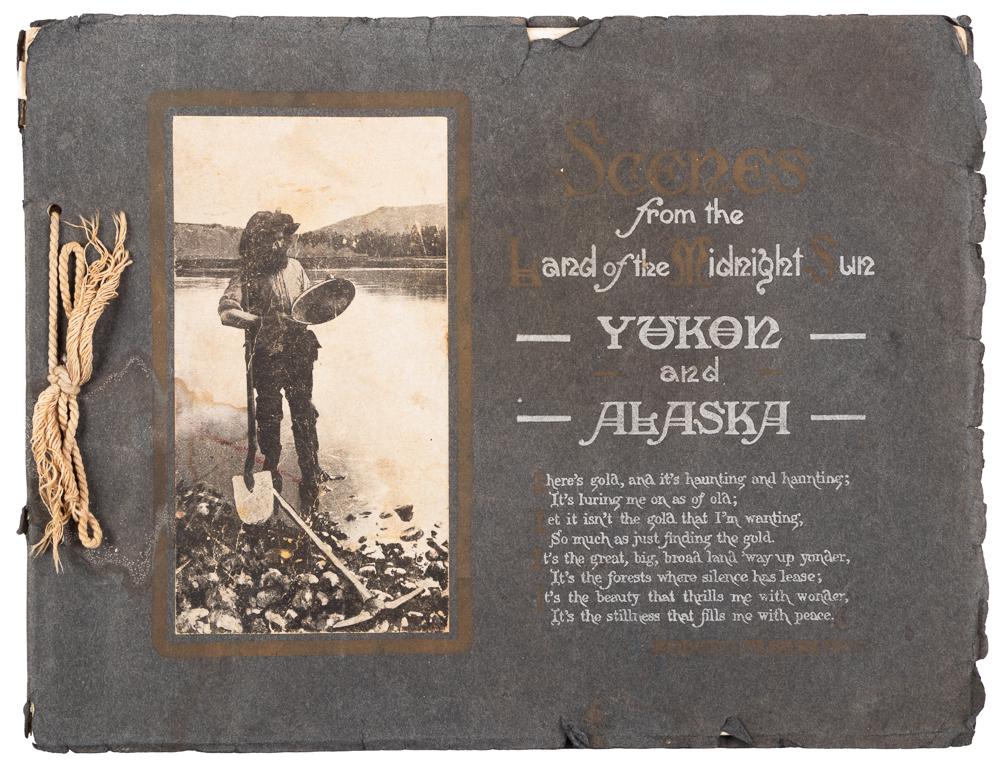 Scenes
from the
Land of the Midnight Sun
YUKON
and
ALASKA
There's gold, and it's haunting and haunting;
It's luring me on as of old;
Yet it isn't the gold that I'm wanting,
So much as just finding the gold.
It's the great, big, broad land 'way up yonder,
It's the forests where silence has lease;
It's the beauty that thrills me with wonder,
It's the stillness that fills me with peace.